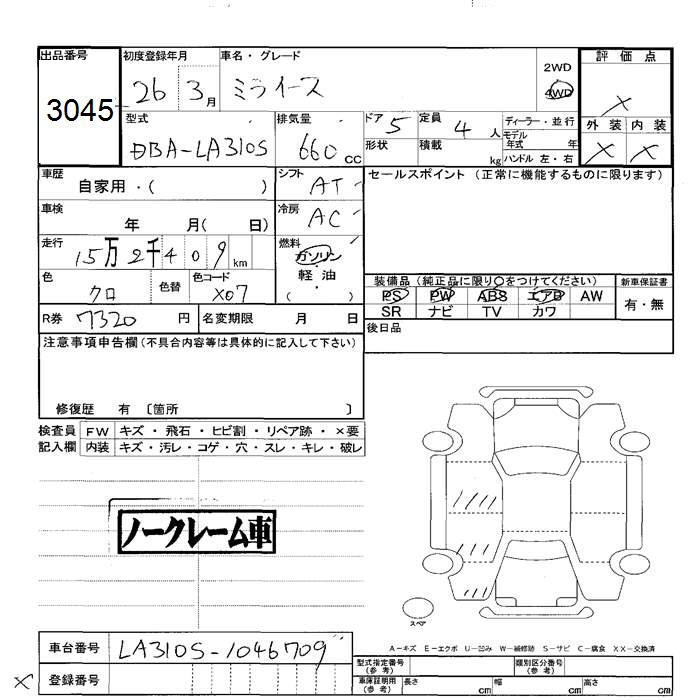 出品番号 初度登録年月 車名・グレード 2WD 評価点
3045 26 3月 ミライース 4WD ×
型式 排気量 ドア 5 定員 4 人 ディーラー・並行 外装 内装
DBA-LA310S 660 CC 形状 積載 kg モデル 年式 年 × ×
ハンドル 左・右
車歴 シフト セールスポイント (正常に機能するものに限ります)
自家用・( ) AT
車検 冷房
年 月( 日) AC
走行 燃料
15万2千409km ガソリン・軽油・( )
色 色替 色コード 装備品(純正品に限り○をつけてください) 新車保証書
クロ X07 PS PW ABS エアB AW 有・無
R券 7320 円 名変期限 月 日 SR ナビ TV カワ
後日品
注意事項申告欄(不具合内容等は具体的に記入して下さい)
修復歴 有 〔箇所 〕
検査員 FW キズ・飛石・ヒビ割・リペア跡・×要
記入欄 内装 キズ・汚レ・コゲ・穴・スレ・キレ・破レ
ノークレーム車
スペア
車台番号 LA310S-1046709
A-キズ E-エクボ U-凹み W-補修跡 S-サビ C-腐食 XX-交換済
× 登録番号
型式指定番号(参考) 類別区分番号(参考)
車庫証明用(参考) 長さ cm 幅 cm 高さ cm